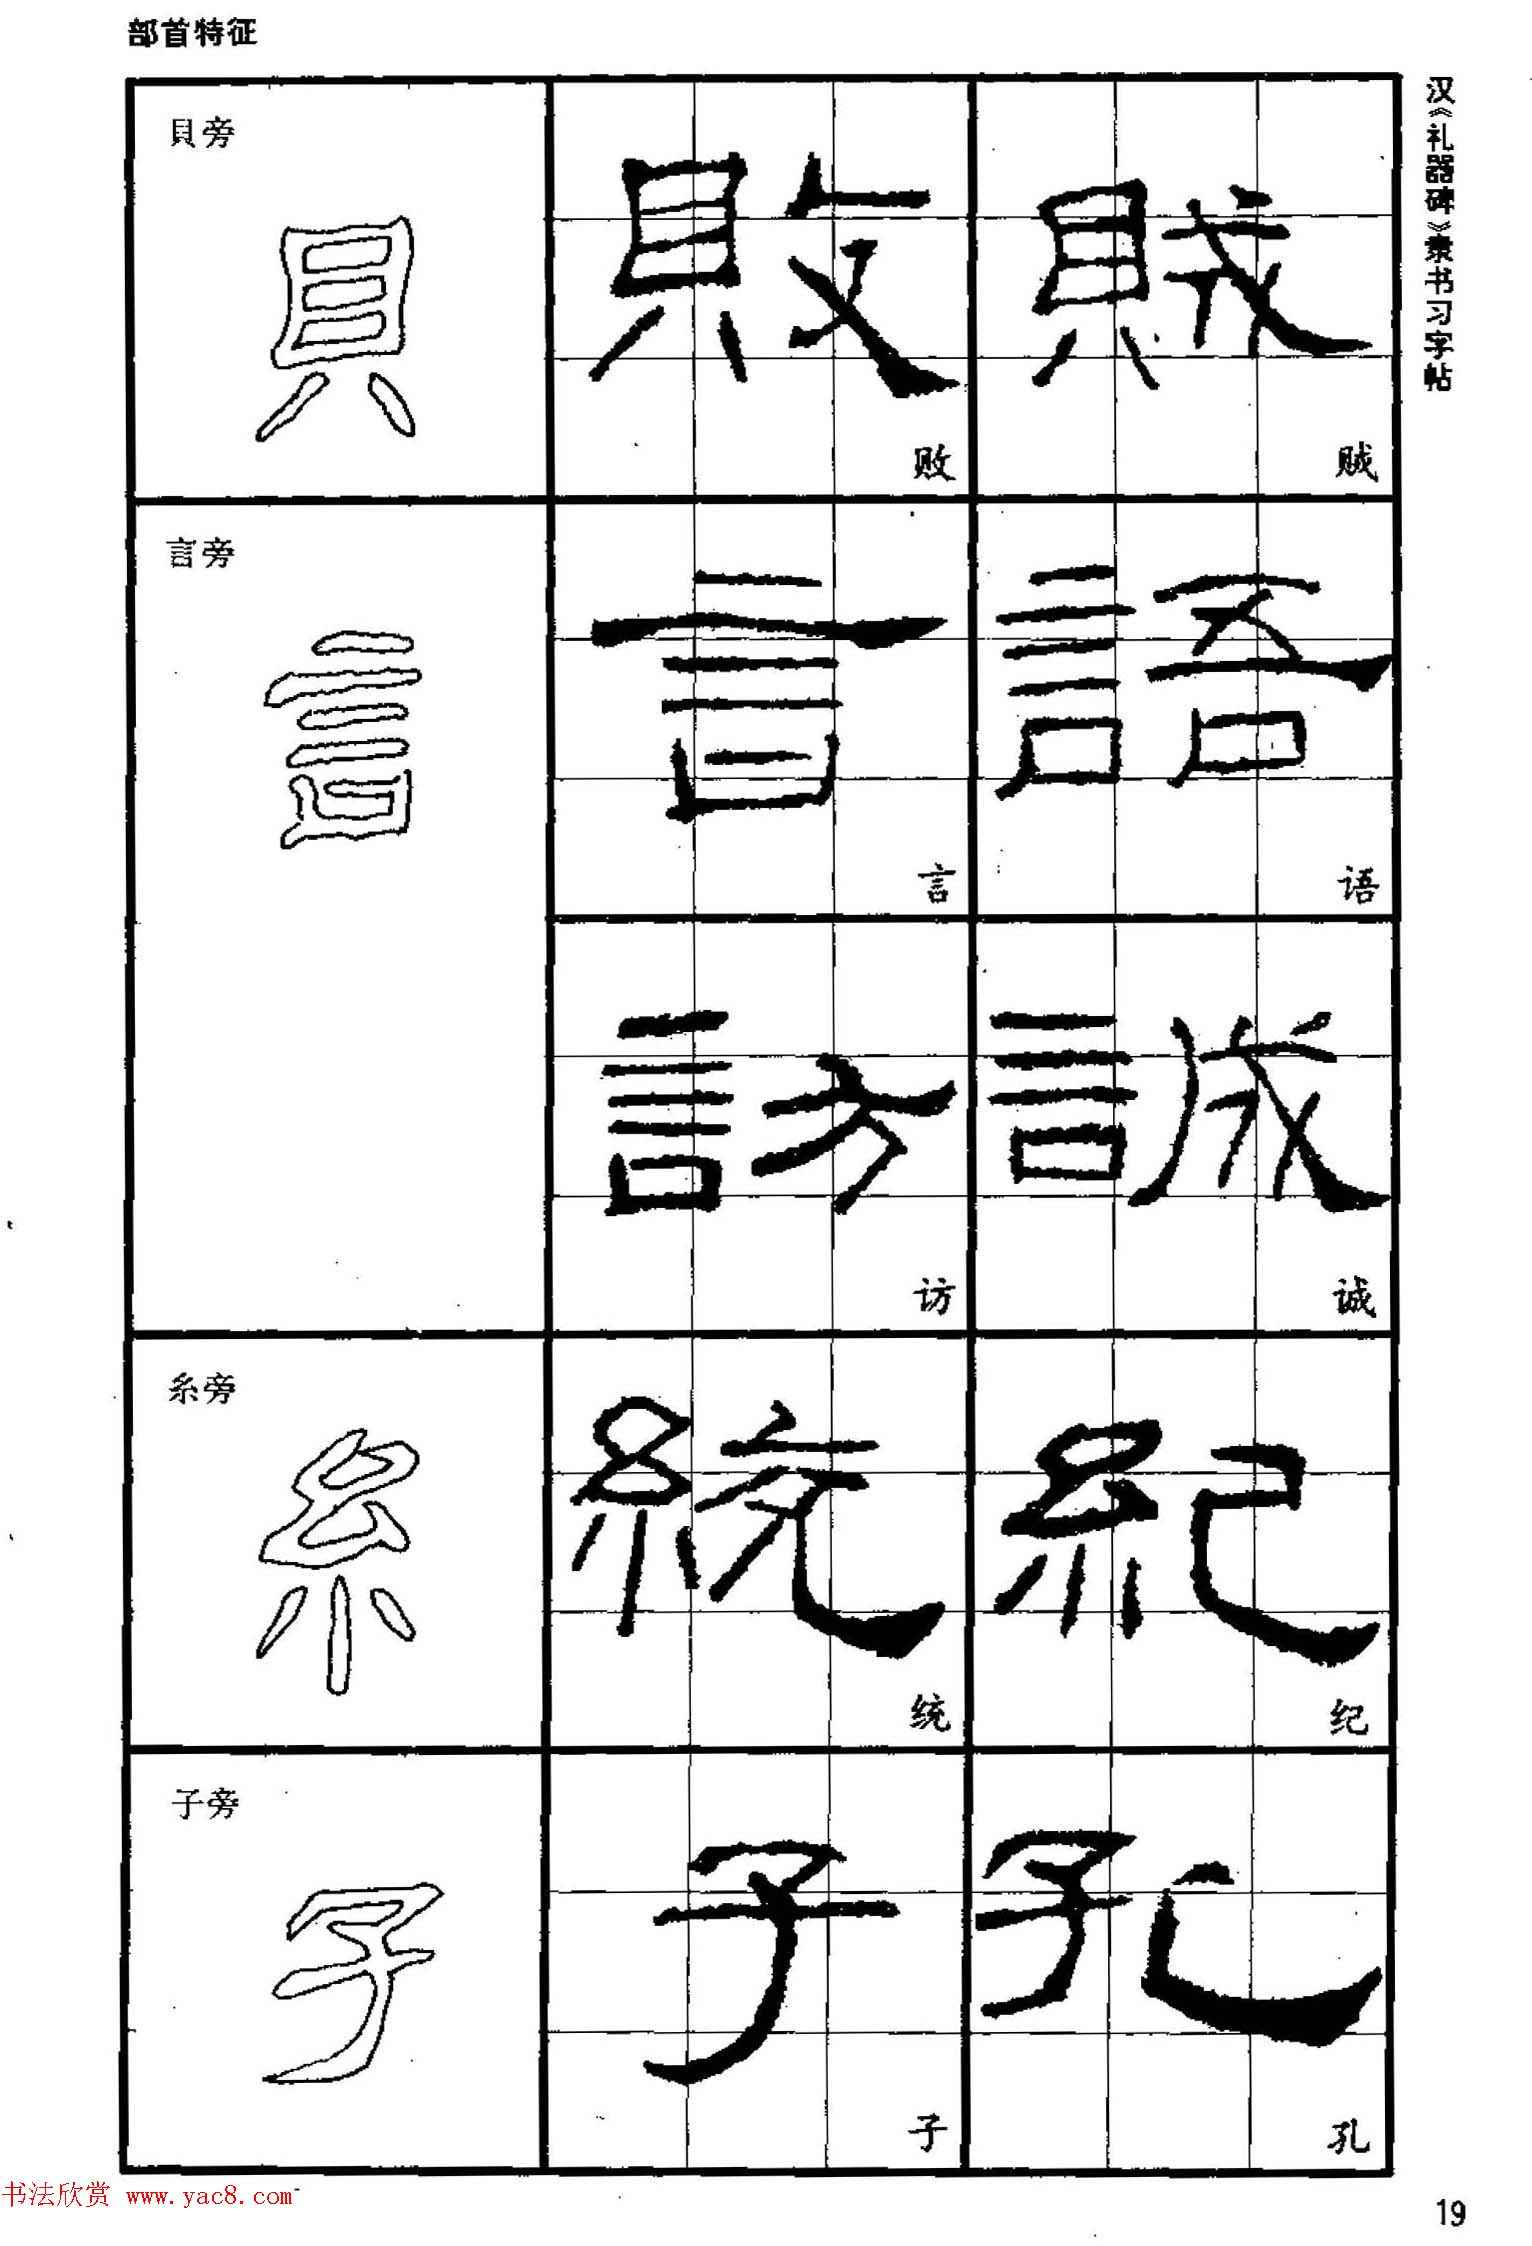 部首特征
汉《礼器碑》隶书习字帖
貝旁
貝
敗
败
賊
贼
言旁
言
言
言
語
语
訪
访
誠
诚
糸旁
糸
統
统
紀
纪
子旁
子
子
子
孔
孔
19
书法欣赏 www.yac8.com